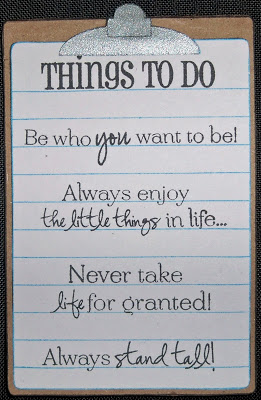 THINGS TO DO
Be who you want to be!
Always enjoy
the little things in life...
Never take
life for granted!
Always stand tall!